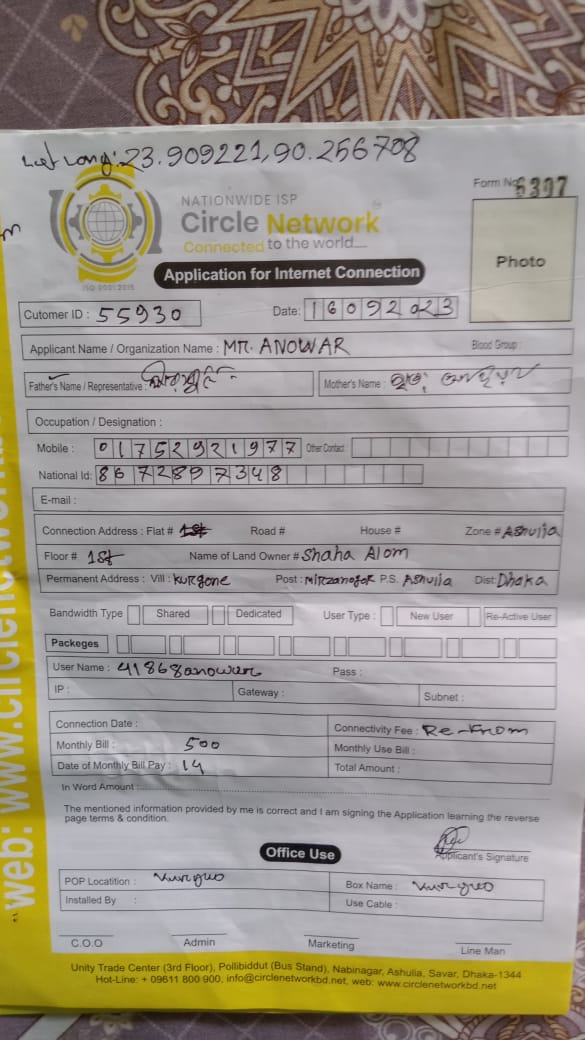 Lat Long: 23.909221,90.256708
Form No 6307
NATIONWIDE ISP
Circle Network
Connected to the world....
ISO 9001:2015
Photo
Application for Internet Connection
Cutomer ID : 55930
Date: 16092023
Applicant Name / Organization Name : MR. ANOWAR Blood Group :
Father's Name / Representative : Mother's Name :
Occupation / Designation :
Mobile : 01752921977 Other Contact
National Id: 8672897348
E-mail :
Connection Address : Flat # Road # House # Zone # Ashulia
Floor # 1st Name of Land Owner # Shaha Alom
Permanent Address : Vill : Kurgone Post : P.S. Ashulia Dist: Dhaka
Bandwidth Type Shared Dedicated User Type : New User Re-Active User
Packeges
User Name : 41868anower Pass :
IP : Gateway : Subnet :
Connection Date : Connectivity Fee :
Monthly Bill : 500 Monthly Use Bill :
Date of Monthly Bill Pay : 14 Total Amount :
In Word Amount :
The mentioned information provided by me is correct and I am signing the Application learning the reverse
page terms & condition.
Applicant's Signature
Office Use
POP Locatition : Box Name :
Installed By : Use Cable :
C.O.O Admin Marketing Line Man
Unity Trade Center (3rd Floor), Pollibiddut (Bus Stand), Nabinagar, Ashulia, Savar, Dhaka-1344
Hot-Line: + 09611 800 900, info@circlenetworkbd.net, web: www.circlenetworkbd.net